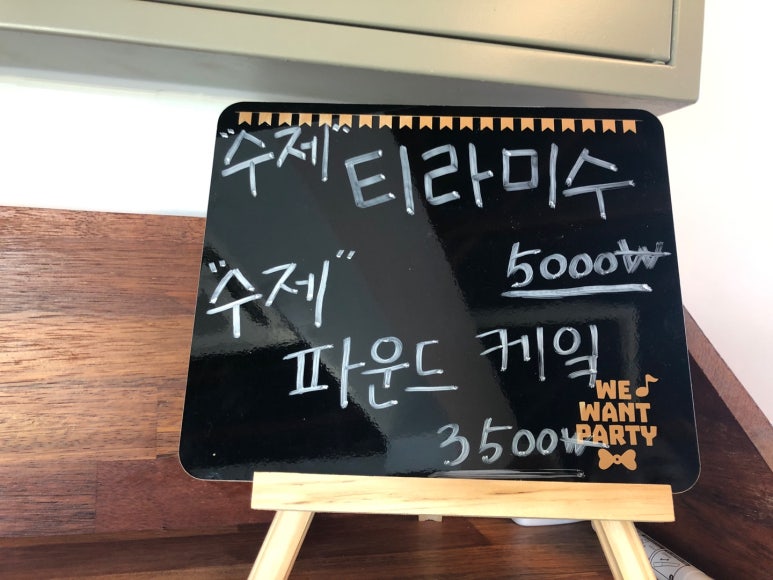 "수제" 티라미수
5000₩
"수제"
파운드 케잌
3500₩
WE
WANT
PARTY